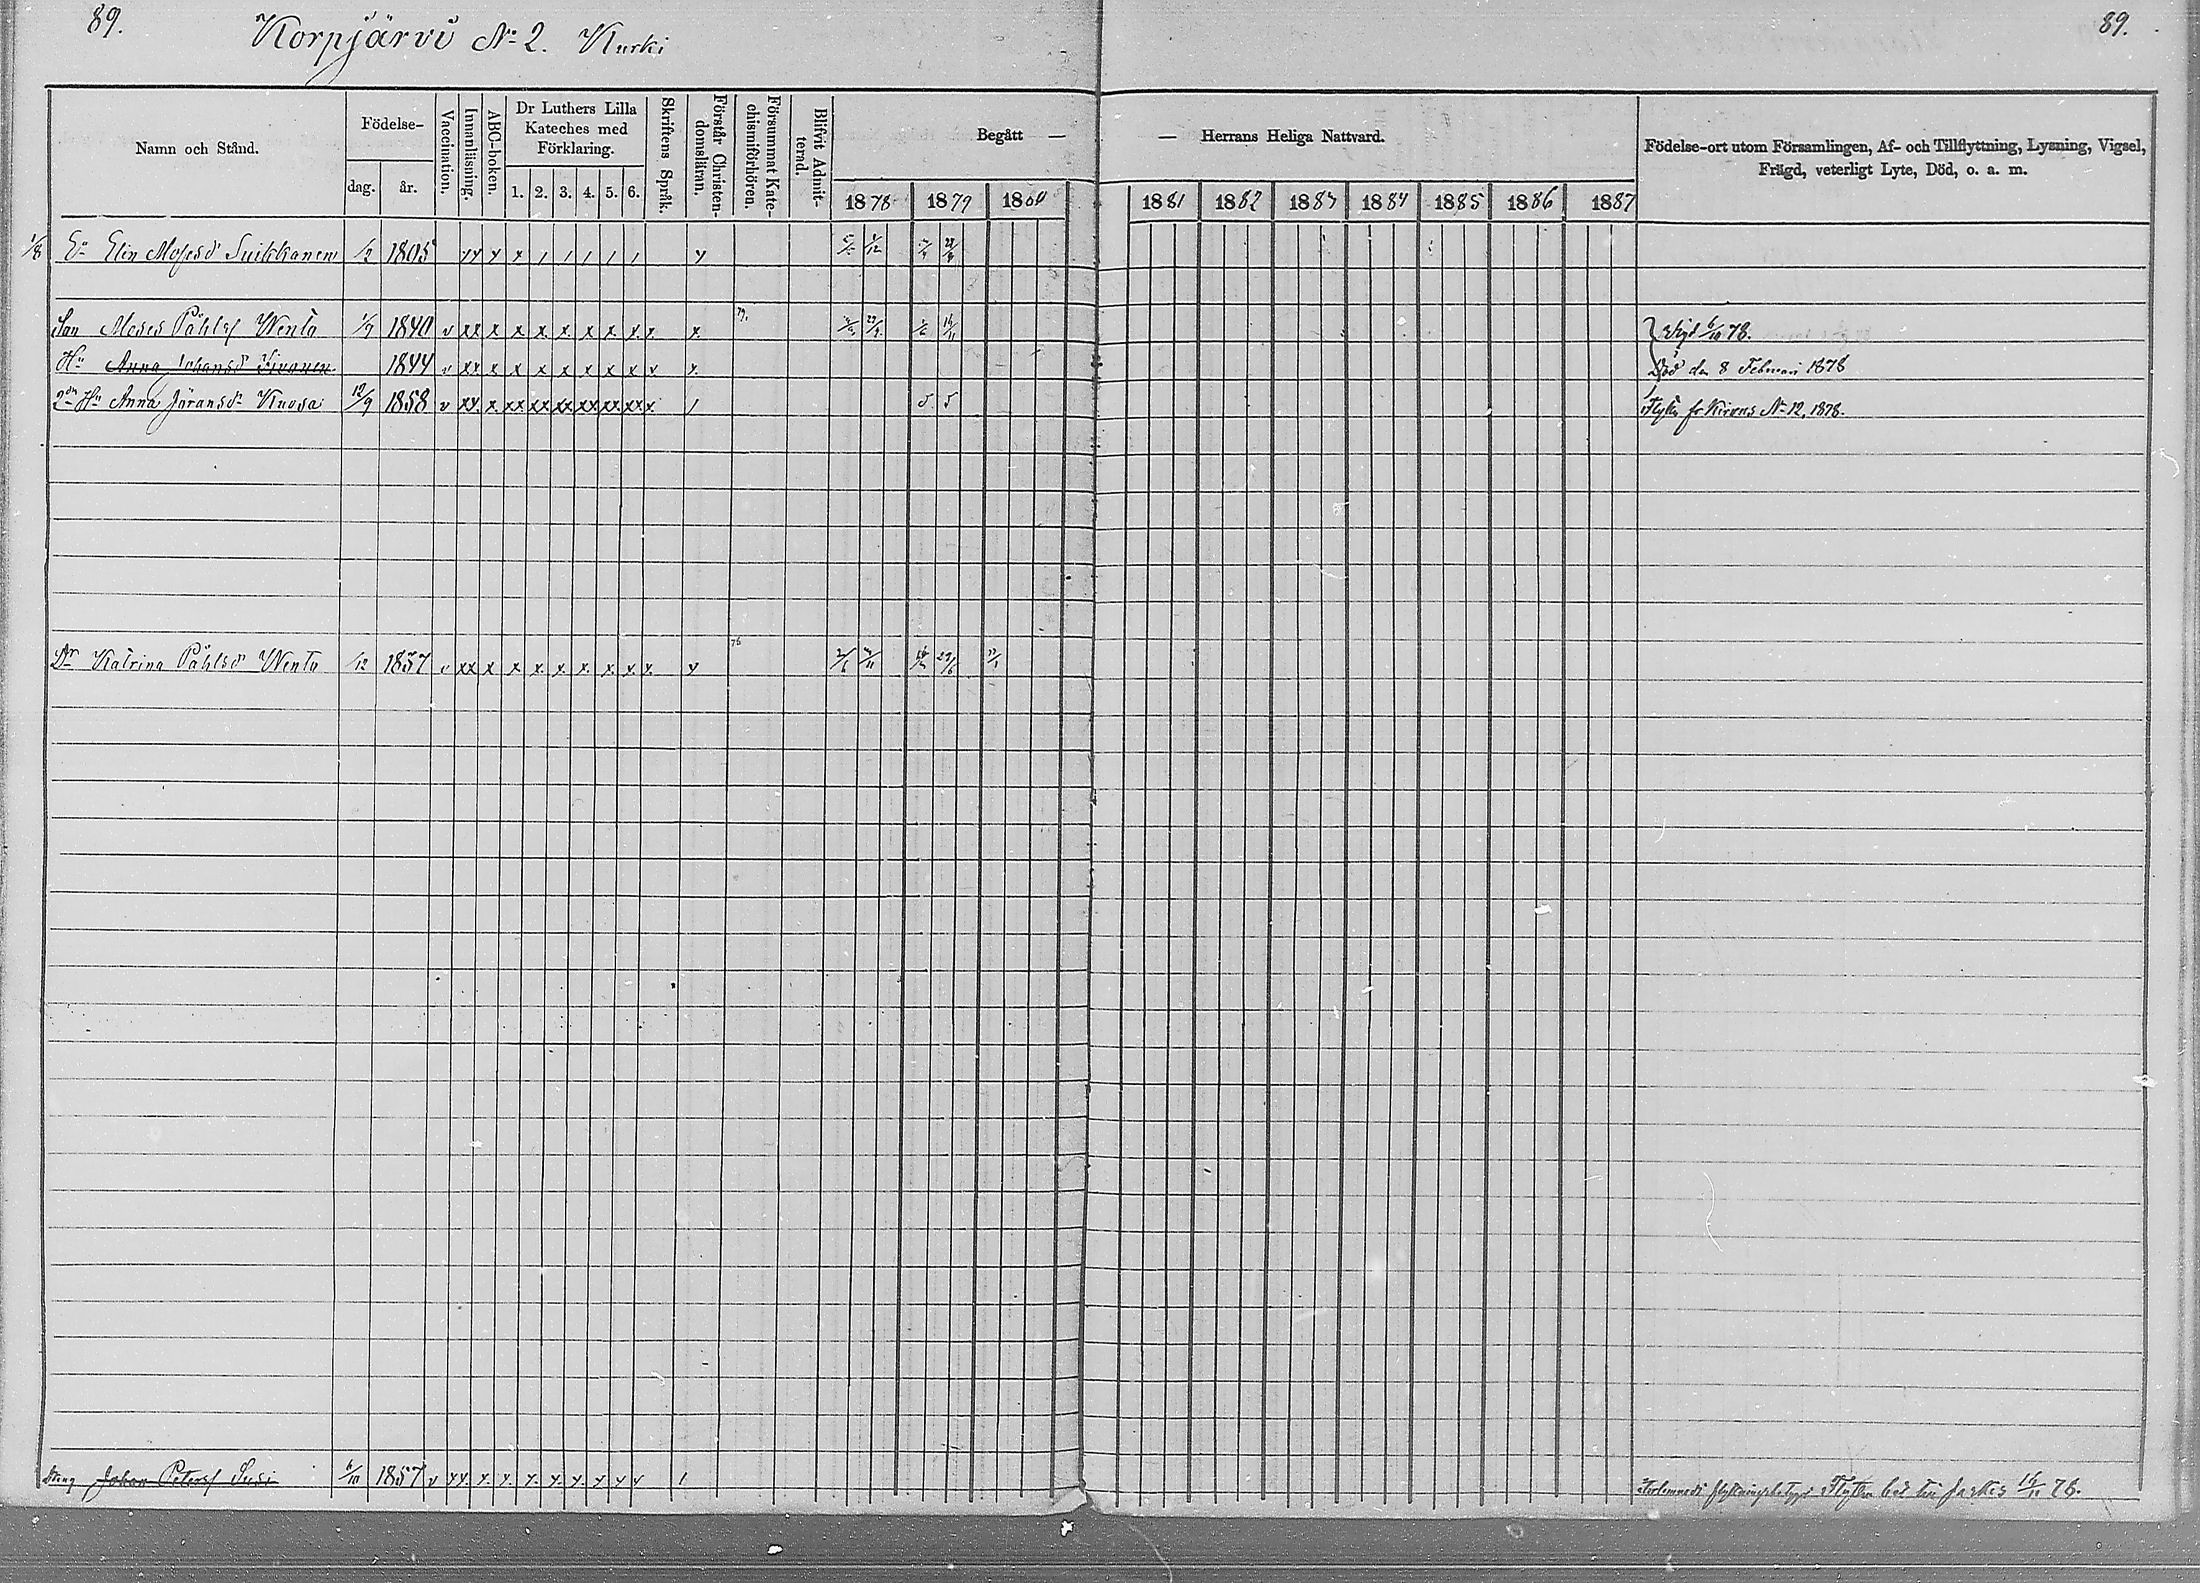 89.
Korpjärvi No 2. Kurki
89.
Namn och Stånd.
Födelse-
dag.
år.
Vaccination.
Innanläsning.
ABC-boken.
Dr Luthers Lilla
Kateches med
Förklaring.
1. 2. 3. 4. 5. 6.
Skriftens Språk.
Förstår Christen-
domsläran.
Försummat Kate-
chismiförhören.
Blifvit Admit-
terad.
Begått —
— Herrans Heliga Nattvard.
1878 1879 1880
1881 1882 1883 1884 1885 1886 1887
Födelse-ort utom Församlingen, Af- och Tillflyttning, Lysning, Vigsel,
Frägd, veterligt Lyte, Död, o. a. m.
1/8 Ea Elin Mosesdr Suikkanen 1/2 1805
Son Moses Påhlsf Wento 1/9 1840 v xx x x x x x x x. x. x. 79. Vigd 6/10 78.
Hu Anna Johansdr 1844 v xx x x x x x x x Död den 8 Februari 1878
2dra Hu Anna Jöransdr Kuosa 12/9 1858 v xx x xx xx xx xx xx xx x. 1 5 5 Flytt fr No 12, 1878.
Dr Katrina Påhlsdr Wento 1/12 1857 v xx x x. x. x. x. x. x. x. 76
Dräng Johan Petersf Susi 6/10 1857 v 1 Flyttn 78.